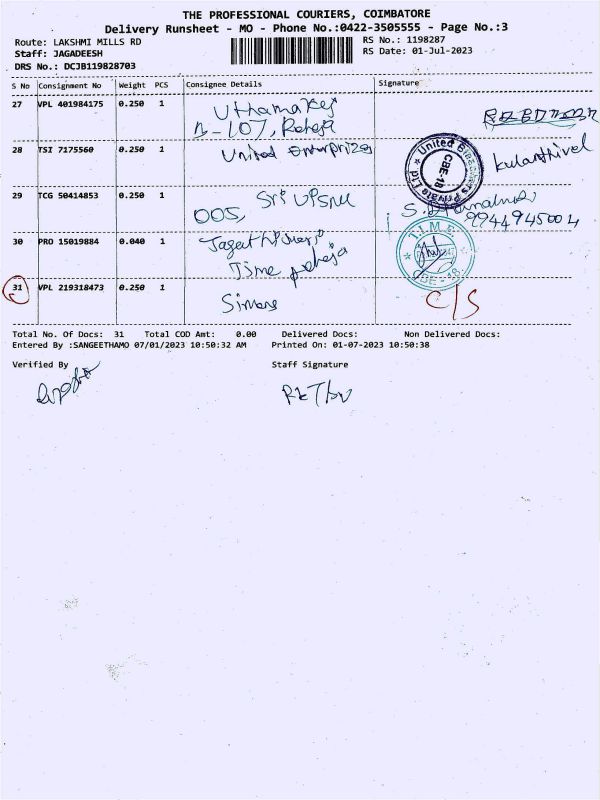 THE PROFESSIONAL COURIERS, COIMBATORE
Delivery Runsheet - MO - Phone No.:0422-3505555 - Page No.:3
Route: LAKSHMI MILLS RD
RS No.: 1198287
Staff: JAGADEESH
RS Date: 01-Jul-2023
DRS No.: DCJB119828703
S No Consignment No Weight PCS Consignee Details Signature
27 VPL 401984175 0.250 1
B-107, Raheja
28 TSI 7175560 0.250 1 United Enterprizes
United
Private Ltd
CBE-18
Kulanthivel
29 TCG 50414853 0.250 1 Sri
005,
9944945004
30 PRO 15019884 0.040 1
Time
T.I.M.E
CBE - 18
31 VPL 219318473 0.250 1
C/S
Total No. Of Docs: 31 Total COD Amt: 0.00 Delivered Docs: Non Delivered Docs:
Entered By :SANGEETHAMO 07/01/2023 10:50:32 AM Printed On: 01-07-2023 10:50:38
Verified By Staff Signature